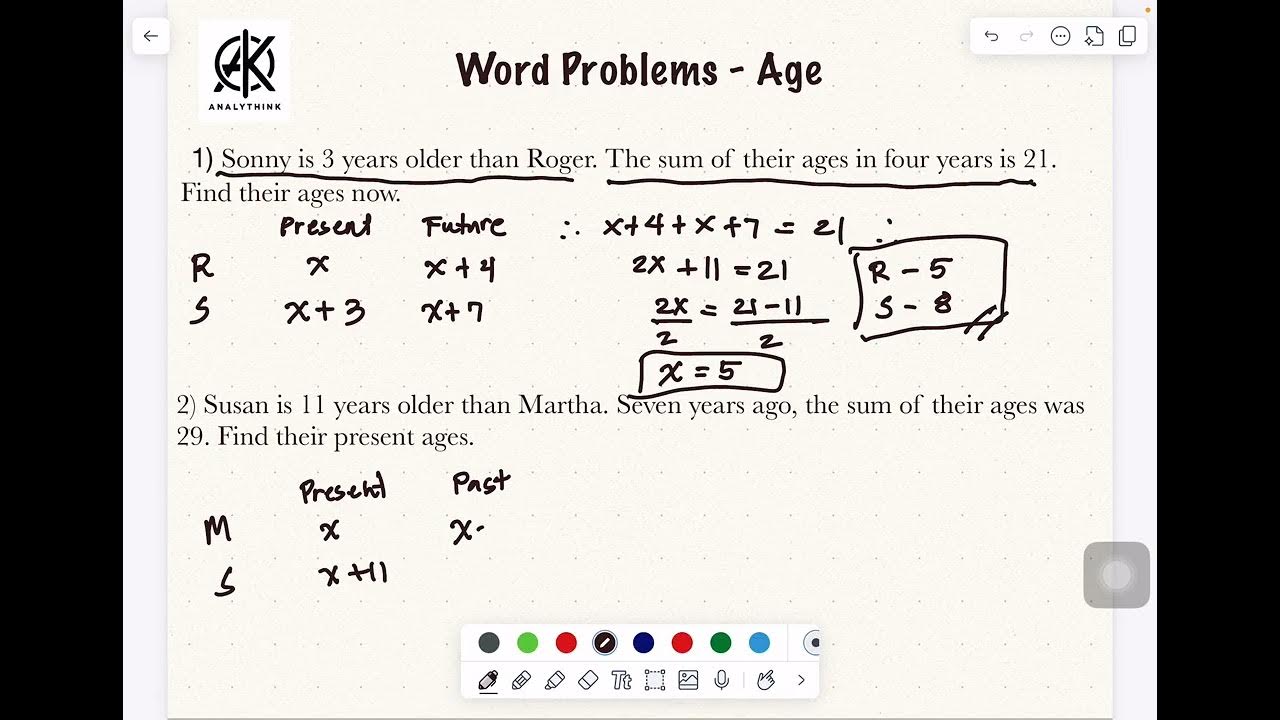 ANALYTHINK
Word Problems - Age
1) Sonny is 3 years older than Roger. The sum of their ages in four years is 21.
Find their ages now.
Present Future
R x x + 4
S x + 3 x + 7
∴ x + 4 + x + 7 = 21 ∴
2x + 11 = 21
2x = 21 - 11
2 2
x = 5
R - 5
S - 8
2) Susan is 11 years older than Martha. Seven years ago, the sum of their ages was
29. Find their present ages.
Present Past
M x x-
S x + 11
Tt